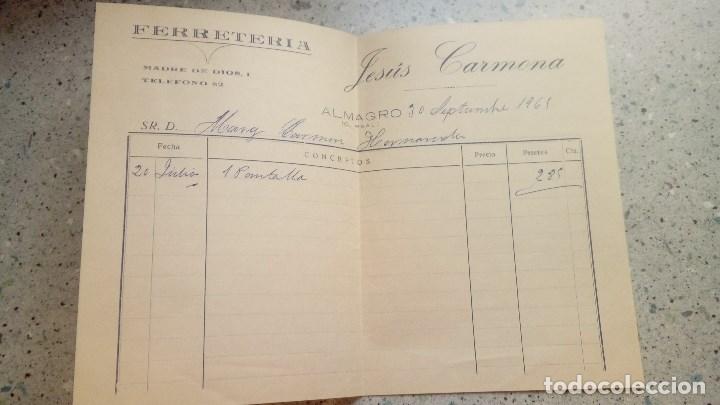 FERRETERIA
MADRE DE DIOS, 1
TELEFONO 82
Jesús Carmona
ALMAGRO 30 Septumbre 1961
(C. REAL)
SR. D. Mary Carmen Hernandez
Fecha CONCEPTOS Precio Pesetas Cts.
20 Julio 1 Pantalla 285
todocoleccion
todocoleccion.net